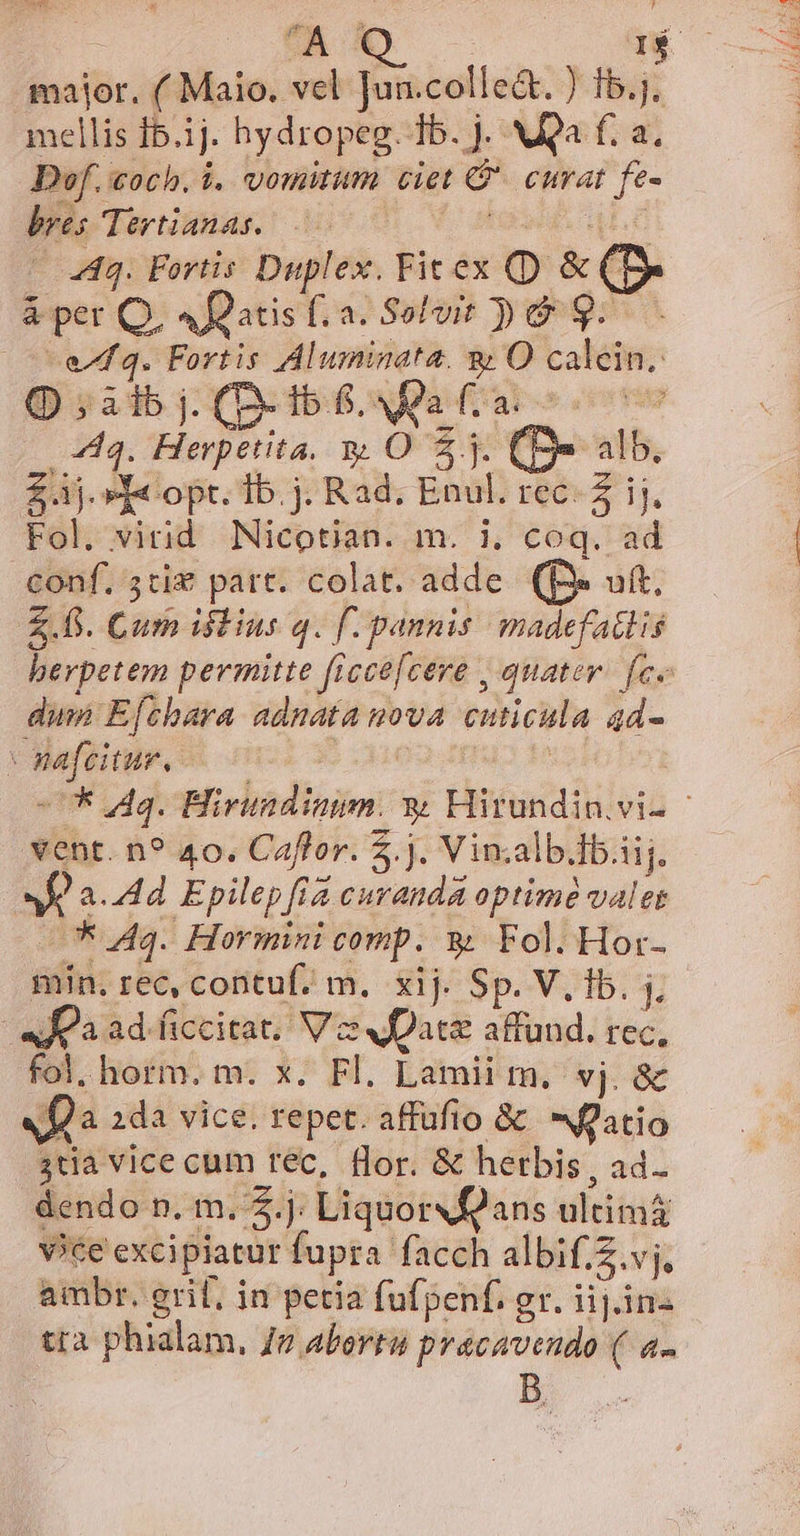 A Q 15
major. ( Maio. vel Jun.collect. ) ℔.j.
mellis ℔.ij. hydropeg. ℔. j. a ſ. a.
Doſ. coch. i. vomitum ciet & curat fe-
bres Tertianas.
Aq. Fortis Duplex. Fit ex 🜕 & 🜖
à per atis ſ. a. Solvit ☽ & ♀.
Aq. Fortis Aluminata. ℞ O calcin.
🜕, à ℔ j. 🜖 ℔ ß. a ſ. a.
Aq. Herpetita. ℞ O ℥ j. 🜖 alb.
℥ ij. opt. ℔. j. Rad. Enul. rec. ℥ ij.
Fol. virid Nicotian. m. i. coq. ad
conſ. 3tiæ part. colat. adde 🜖 uſt.
℥.ß. Cum istius q. ſ. pannis madefactis
herpetem permitte ſicceſcere, quater ſe-
dum Eſchara adnata nova cuticula ad-
naſcitur.
* Aq. Hirundinum. ℞ Hirundin. vi-
vent. nº 40. Caſtor. ℥.j. Vin.alb.℔.iij.
a. Ad Epilepſiā curandā optimè valet
* Aq. Hormini comp. ℞ Fol. Hor-
min. rec, contuſ. m. xij. Sp. V. ℔. j.
a ad ſiccitat. atæ affund. rec.
fol. horm. m. x. Fl. Lamii m. vj. &
a 2da vice. repet. affuſio & atio
3tia vice cum rec, flor. & herbis, ad-
dendo n. m. ℥.j. Liquor ans ultimâ
vice excipiatur ſupra ſacch albiſ.℥.vj.
ambr. griſ. in petia ſuſpenſ. gr. iij.in-
tra phialam. In abortu præcavendo ( a-
B